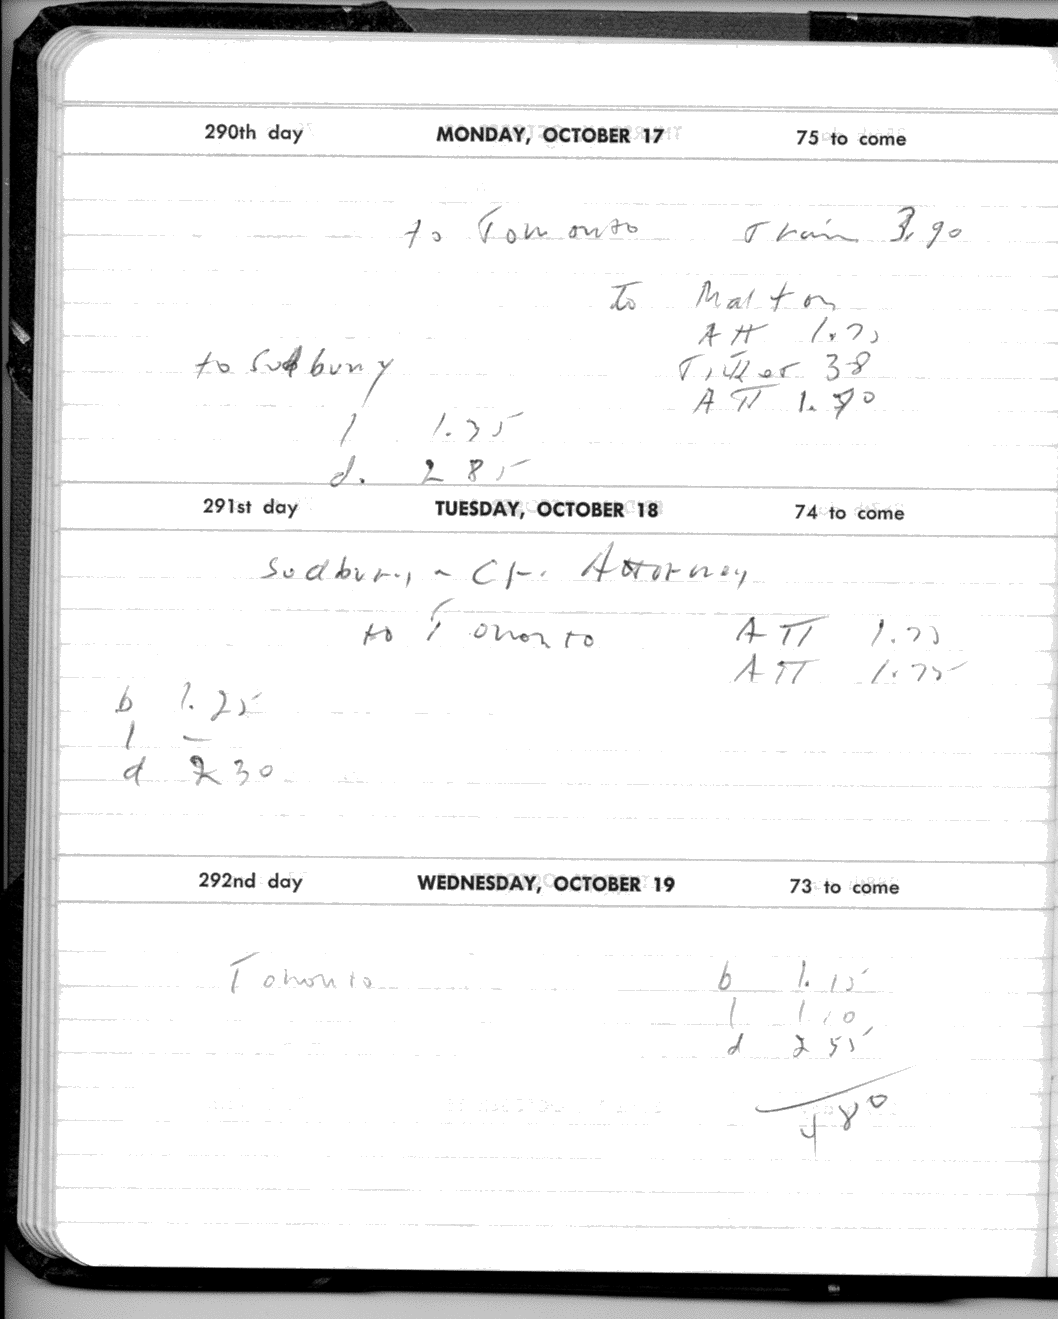 290th day MONDAY, OCTOBER 17 75 to come
to Toronto Train 3.90
to Malton
ATT 1.75
to Sudbury Ticket 38
ATT 1.70
l 1.35
d. 2 85
291st day TUESDAY, OCTOBER 18 74 to come
Sudbury - Cr. Attorney
to Toronto ATT 1.75
ATT 1.75
b 1.25
l –
d 2 30
292nd day WEDNESDAY, OCTOBER 19 73 to come
Toronto b 1.15
l 1.10
d 2 55
4 80